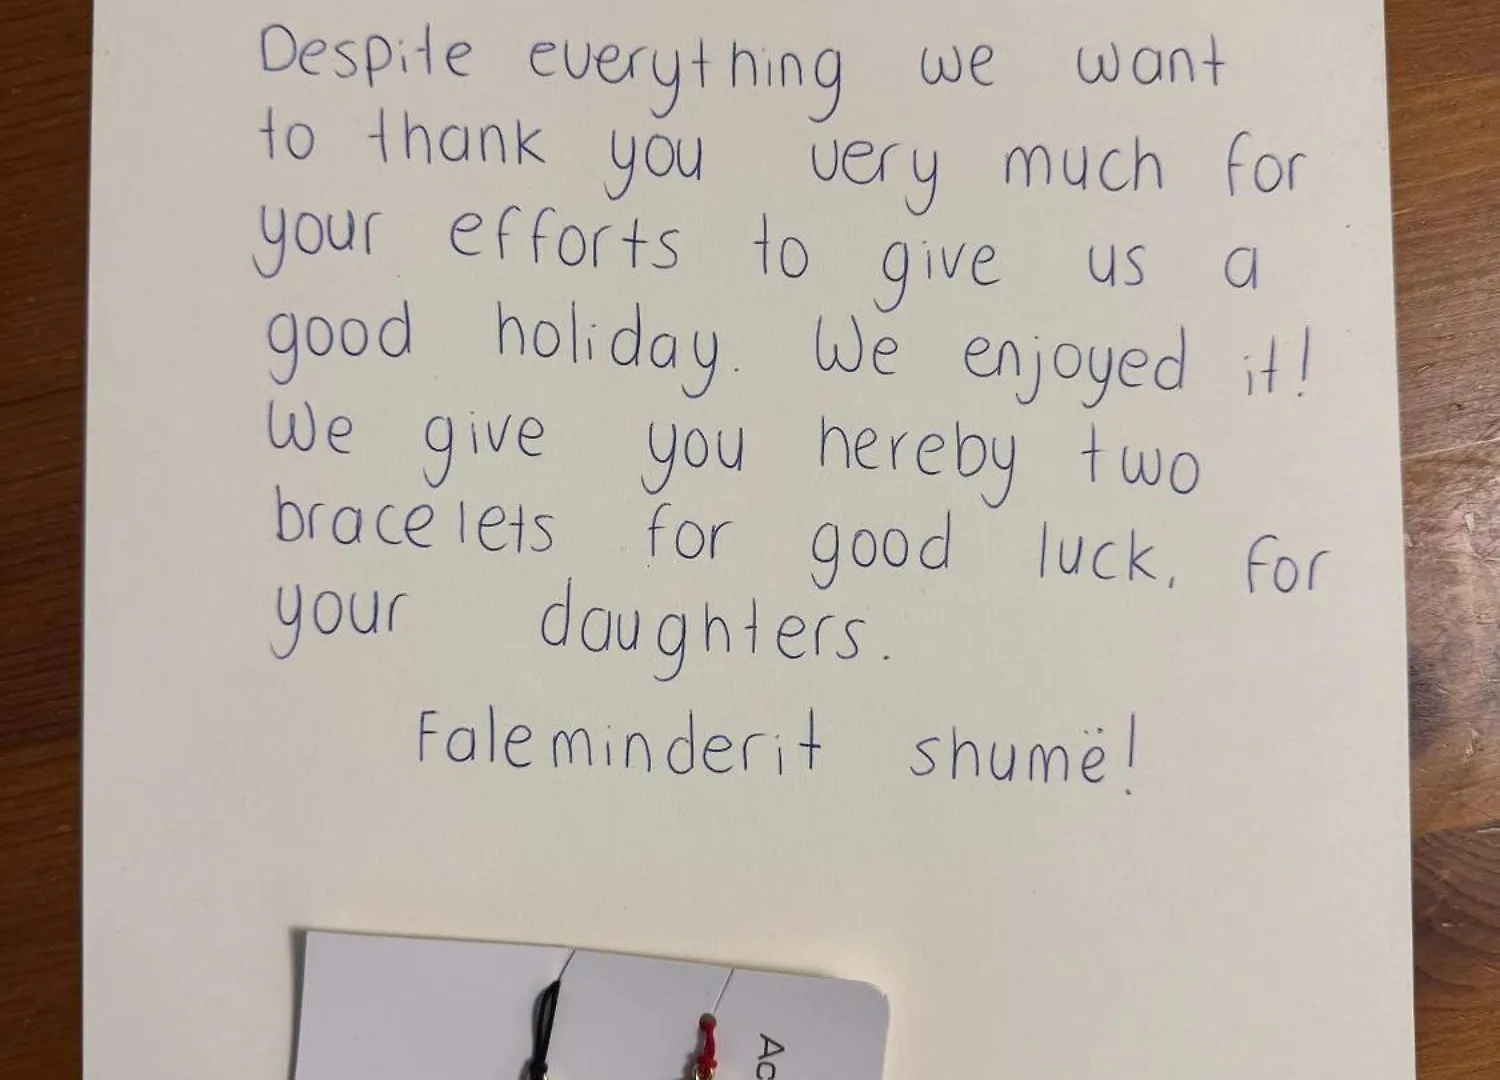 Despite everything we want
to thank you very much for
your efforts to give us a
good holiday. We enjoyed it!
We give you hereby two
bracelets for good luck, for
your daughters.
Faleminderit shumë!
Ac